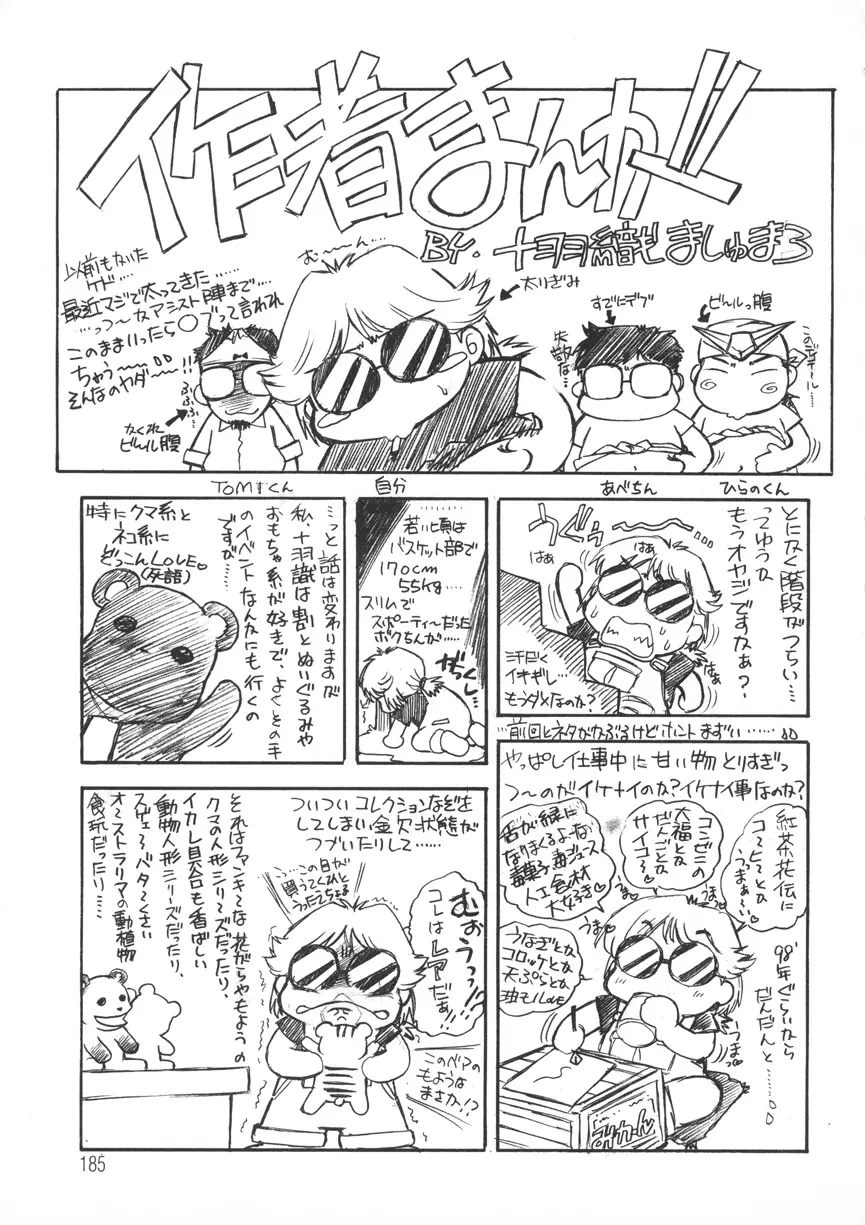 作者まんが!!
BY. 十羽織ましゅまろ
む〜〜ん…
以前もかいた
ケド……
最近マジで太ってきた……
…っつーかアシスト陣まで…
このままいったら〇ブって言われ
ちゃう〜〜
そんなのヤダ〜!!
ふふふ…
かくれ
ビール腹
太りぎみ
すでにデブ
失敬な…
ビールっ腹
TOMすくん
自分
あべちん
ひらのくん
とにかく階段がつらい…
ってゆうか
もうオヤジですかぁ?
うぐぅ
はぁ
はぁ
はぁ
汗だく
イキギレ…
もうダメなのか?
若い頃は
バスケット部で
170cm
55kg……
スリムで
スポーティーだった
ボクちんが……
がっくし…
…っと話は変わりますが
私、十羽織は割とぬいぐるみや
おもちゃ系が好きで、よくその手
のイベントなんかにも行くの
ですが……
特にクマ系と
ネコ系に
どっこんLOVE♡
(死語)
…前回とネタがかぶるけどホントまずい……
やっぱし仕事中に甘い物とりすぎっ
つ〜のがイケナイのか?イケナイ事なのか?
紅茶花伝に
コーヒーとか
うまぁ〜い♡
コンビニの
大福とか
だんごとか
サイコー♡
舌が緑に
なぼくるよーな
毒菓子毒ジュース
人工食材
大好き♡
うなぎとか
コロッケとか
天ぷらとか
強モノLOVE
うま♡
うまっ♡
うまっ
98'年ぐらいから
だんだんと……
みかーん
ついついコレクションなぞを
してしまい金欠状態が
つづいたりして……
…この目が
買ってくれと
うったえちょる
むおぅっっ!!
コレは
レア
だぁ!!
このベアの
もようは
まさか!?
それはファンキーな花がらやもようの
クマの人形シリーズだったり、
イカレ具合も香ばしい
動物人形シリーズだったり、
スゲェ〜バタ〜くさい
オーストラリアの動植物
食玩だったり……
185